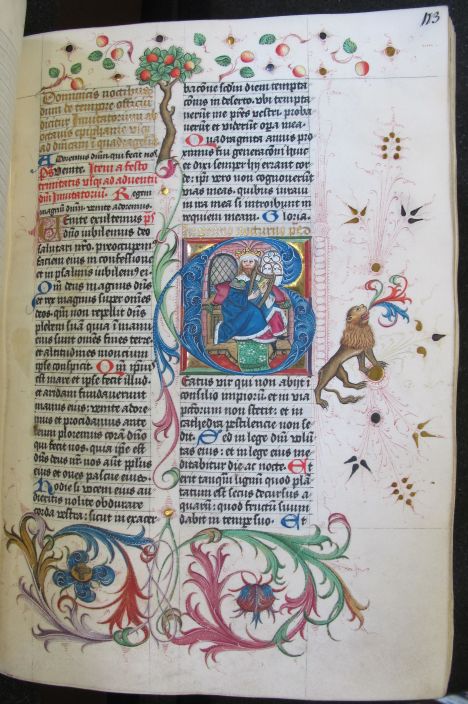 113
Dominicis noctib; ad
diuia de tempore officiū
dicitur Inuitatoriū ab
octauis epiphanie vsq;
ad dnicam i quadragesia
Adoremus dnm. qui fecit nos
Ps Venite. Item a festo
trinitatis vsq; ad aduentū
dni Inuitatoriū. Regem
magnū dnm. venite adoremus.
Uenite exultemus ps
dno iubilemus deo
salutari nro. preoccupem
faciem eius in confessione
et in psalmis iubilem9 ei
Qm deus magnus dns
et rex magnus super omnes
deos. qm non repellit dns
plebem suā quia i manu
eius sunt omnes fines terre
et altitudines montium
ipse conspicit. Qm ipsius
est mare et ipse fecit illud
et aridam fundauerunt
manus eius. venite adore
mus et procidamus ante
deum ploremus coram dno
qui fecit nos. quia ipse est
dns deus nr. nos aūt pplus
eius et oues pascue eius.
Hodie si vocem eius au
dieritis nolite obdurare
corda vestra: sicut in exacer
bacōne scdm diem tempta
cōnis in deserto. vbi tempta
uerūt me pres vestri proba
uerūt et viderūt opa mea.
Quadraginta annis pro
ximus fui generacōni huic
et dixi semper hij errant cor
de: ipi vero non cognouerūt
vias meas. quibus iuraui
in ira mea si introibunt in
requiem meam. Gloria.
In primo nocturno
Eatus vir qui non abijt i
consilio impiorū: et in via
pctorum non stetit: et in
cathedra pestilencie non se
dit. Sed in lege dni volū
tas eius: et in lege eius me
ditabitur die ac nocte. Et
erit tanqū lignū quod plā
tatum est secus decursus a
quarū: quod fructū suum
dabit in tempe suo. Et